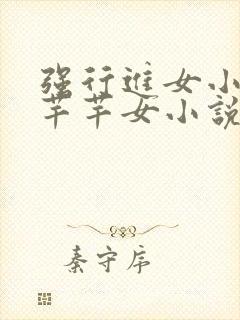 强行进女小
芊芊女小說
秦守序